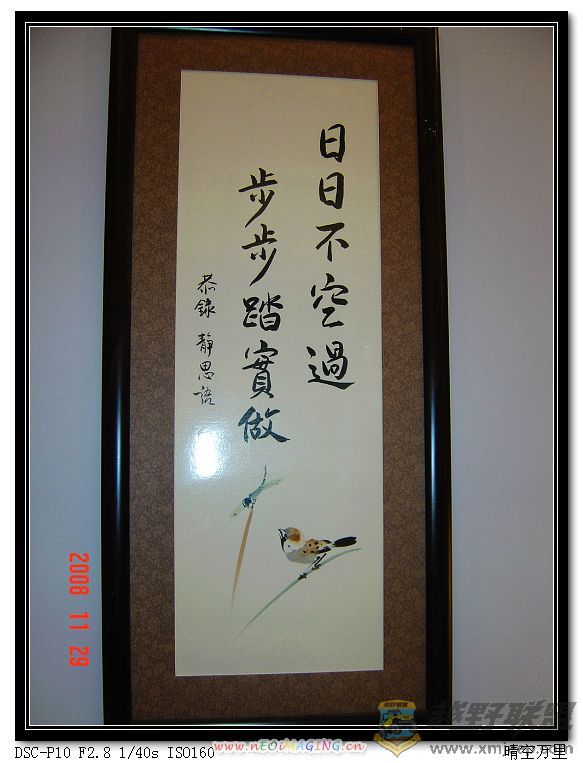 日日不空過
步步踏實做
恭錄 靜思語
2008 11 29
越野联盟
越野联盟
DSC-P10 F2.8 1/40s ISO160
www.nEOiMAGING.cn
晴空万里